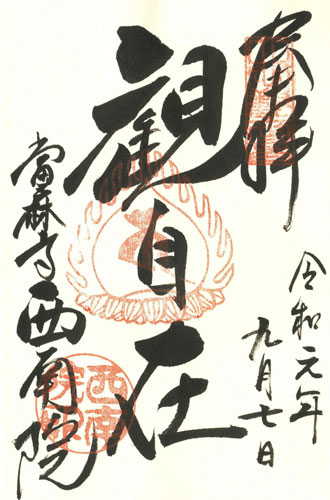 奉拝
令和元年
九月七日
観自在
當麻寺西南院